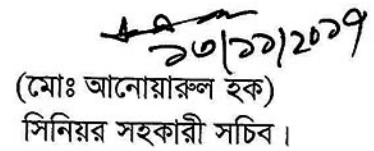 ১৩/১১/২০১৭
(মোঃ আনোয়ারুল হক)
সিনিয়র সহকারী সচিব।